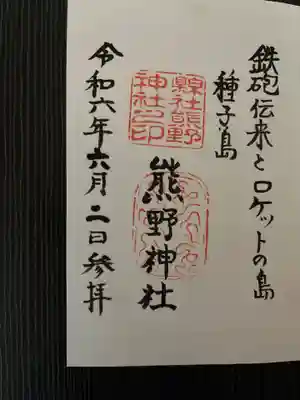 鉄砲伝来とロケットの島
種子島
縣社熊野
神社之印
熊野神社
令和六年六月二日参拝